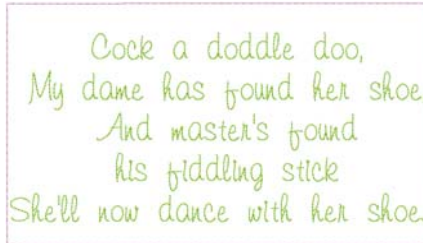 Cock a doddle doo,
My dame has found her shoe
And master's found
his fiddling stick
She'll now dance with her shoe.